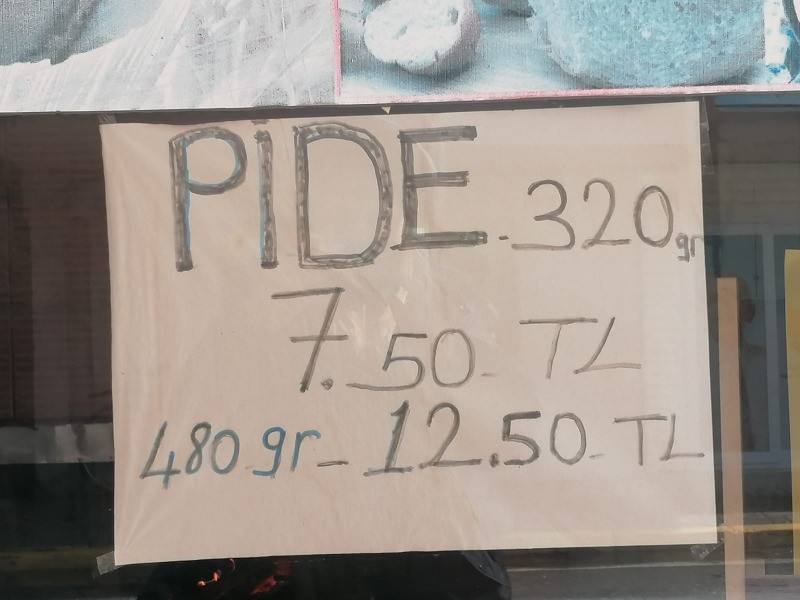 PİDE - 320gr
7.50 - TL
480 gr - 12.50 - TL